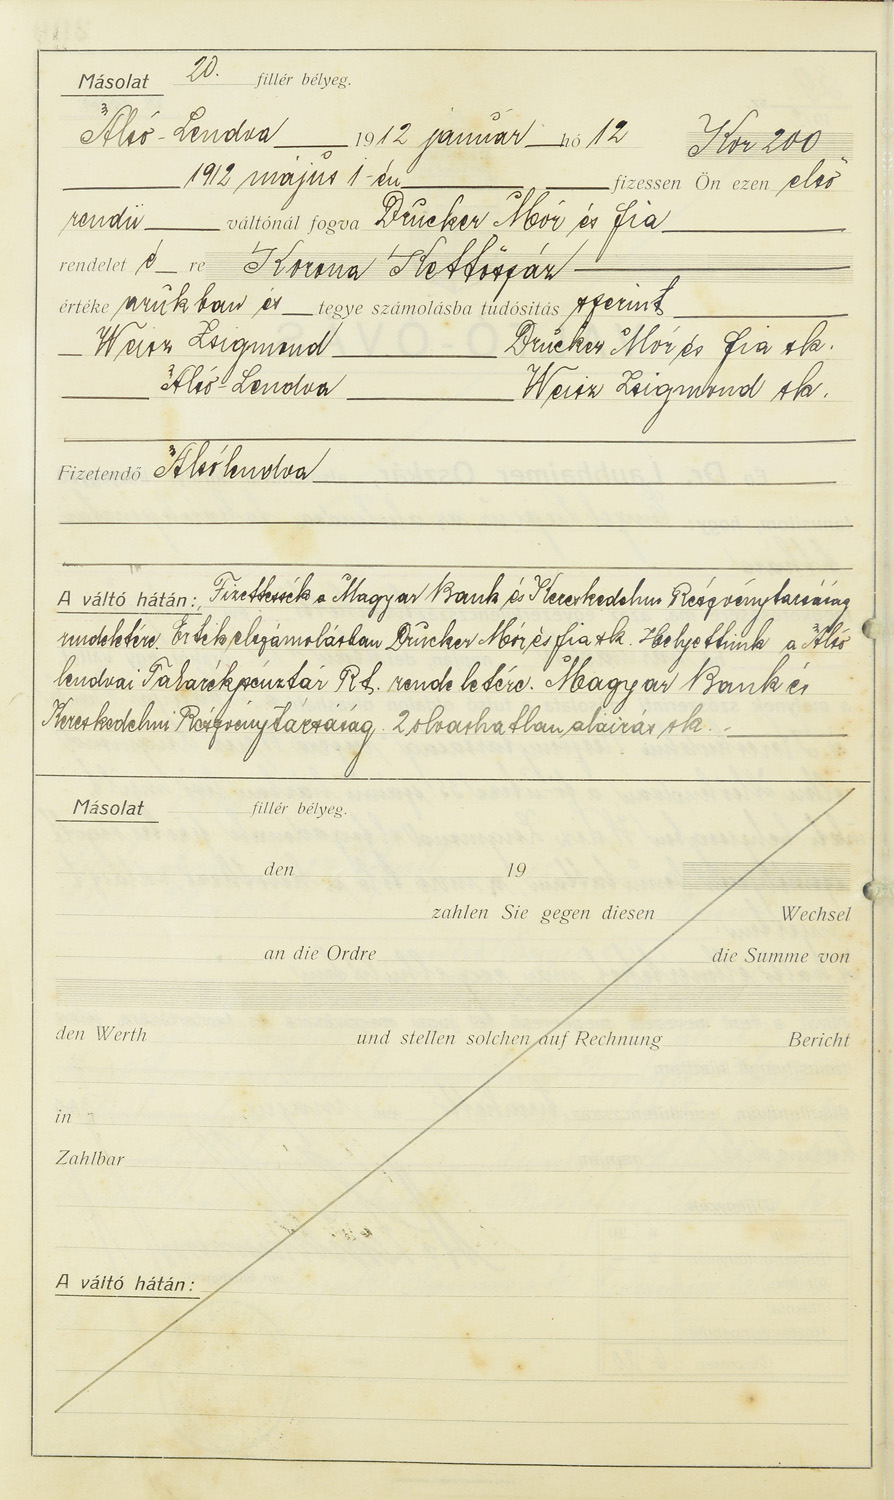 Másolat 20. fillér bélyeg.
Alsó-Lendva 1912 január hó 12 Kor 200
1912 május 1-én fizessen Ön ezen első
rendü váltónál fogva Drucker Mór és fia
rendelet é re Korona Kettőszáz
értéke árúkban és tegye számolásba tudósitás szerint
Weisz Zsigmond Drucker Mór és fia sk.
Alsó-Lendva Weisz Zsigmond sk.
Fizetendő Alsólendva
A váltó hátán: Fizettessék a Magyar Bank és Kereskedelmi Részvénytársaság
rendeletére. Érték elszámolásban Drucker Mór és fia sk. Helyettünk a Alsó
lendvai Takarékpénztár Rt. rendeletére. Magyar Bank és
Kereskedelmi Részvénytársaság. 2 olvashatlan aláirás sk.
Másolat fillér bélyeg.
den 19
zahlen Sie gegen diesen Wechsel
an die Ordre die Summe von
den Werth und stellen solchen auf Rechnung Bericht
in
Zahlbar
A váltó hátán: